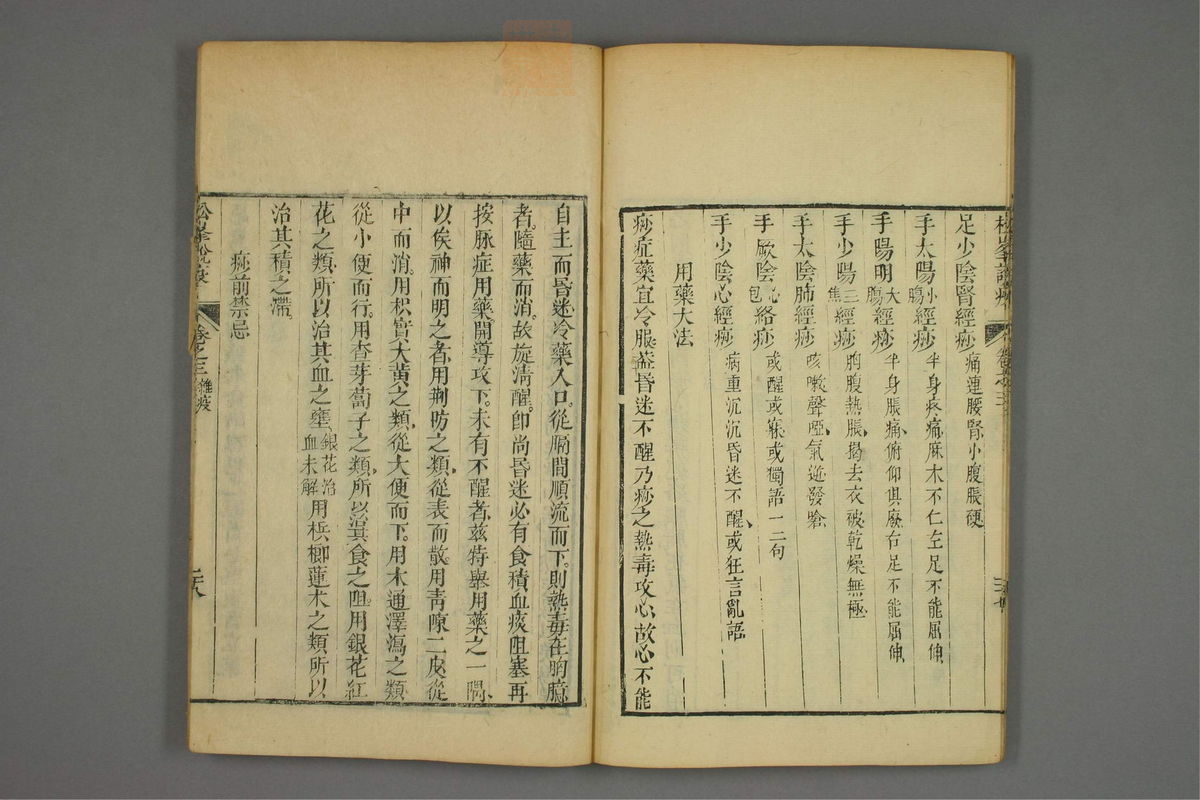 足少陰腎經痧 痛連腰腎小腹脹硬
手太陽小腸經痧 半身疼痛麻木不仁左足不能屈伸
手陽明大腸經痧 半身脹痛俯仰俱廢右足不能屈伸
手少陽三焦經痧 胸腹熱脹揭去衣被乾燥無極
手太陰肺經痧 咳嗽聲啞氣逆發嗆
手厥陰心包絡痧 或醒或寐或獨語一二句
手少陰心經痧 病重沉沉昏迷不醒或狂言亂語
用藥大法
痧症藥宜冷服葢昏迷不醒乃痧之熱毒攻心故心不能
自主而昏迷冷藥入口從膈間順流而下則熱毒在胸膈
者隨藥而消故旋清醒卽尚昏迷必有食積血痰阻塞再
按脉症用藥開導攻下未有不醒者玆特舉用藥之一隅
以俟神而明之者用荆昉之類從表而散用靑陳二皮從
中而消用枳實大黃之類從大便而下用木通澤瀉之類
從小便而行用查芽蔔子之類所以治其食之阻用銀花紅
花之類所以治其血之壅銀花治血未解用梹榔蓮术之類所以
治其積之滯
痧前禁忌
松峯說疫 卷之三 雜疫 二十八